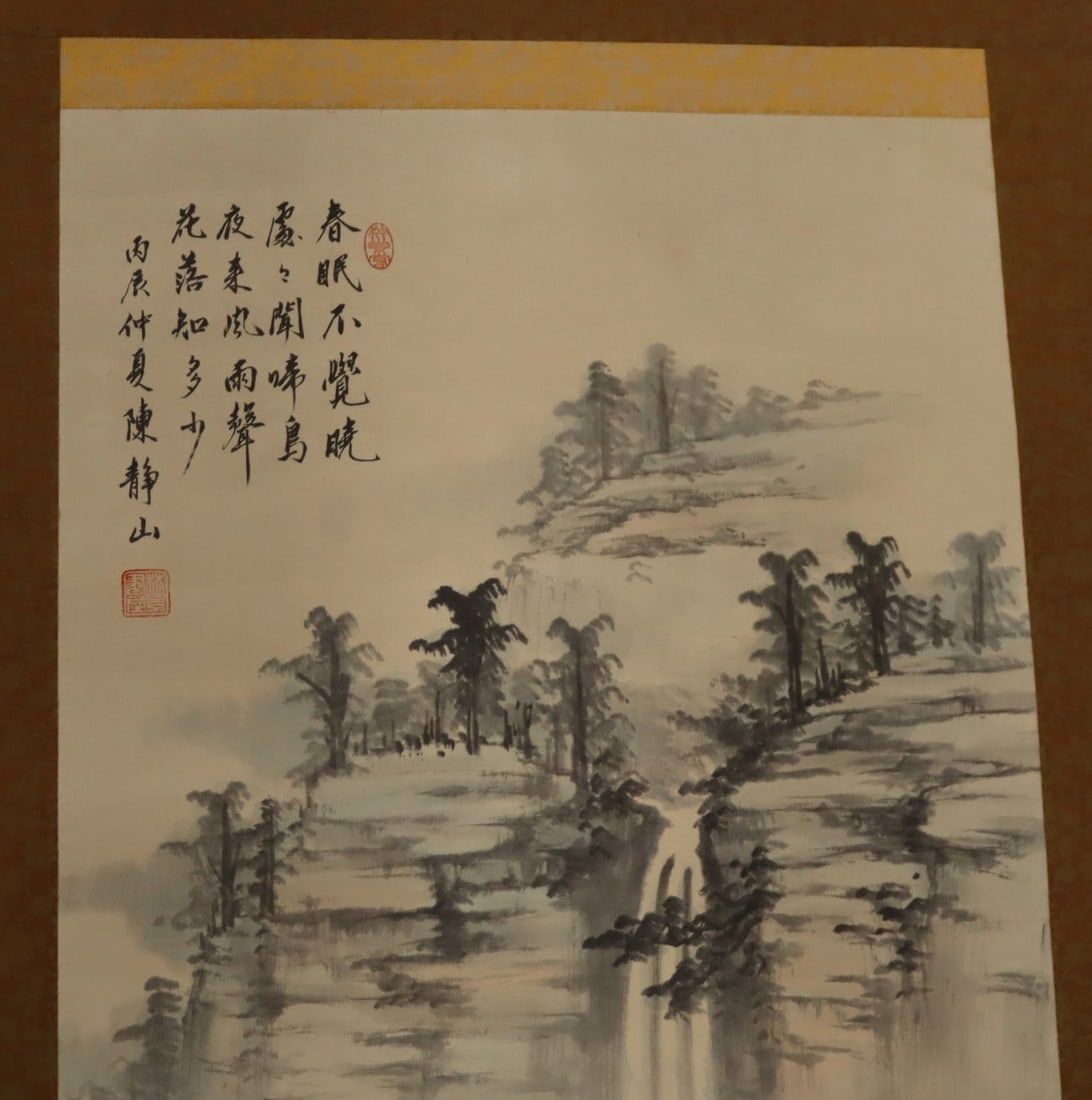 春眠不覺曉
處々聞啼鳥
夜来風雨聲
花落知多少
丙辰仲夏陳静山